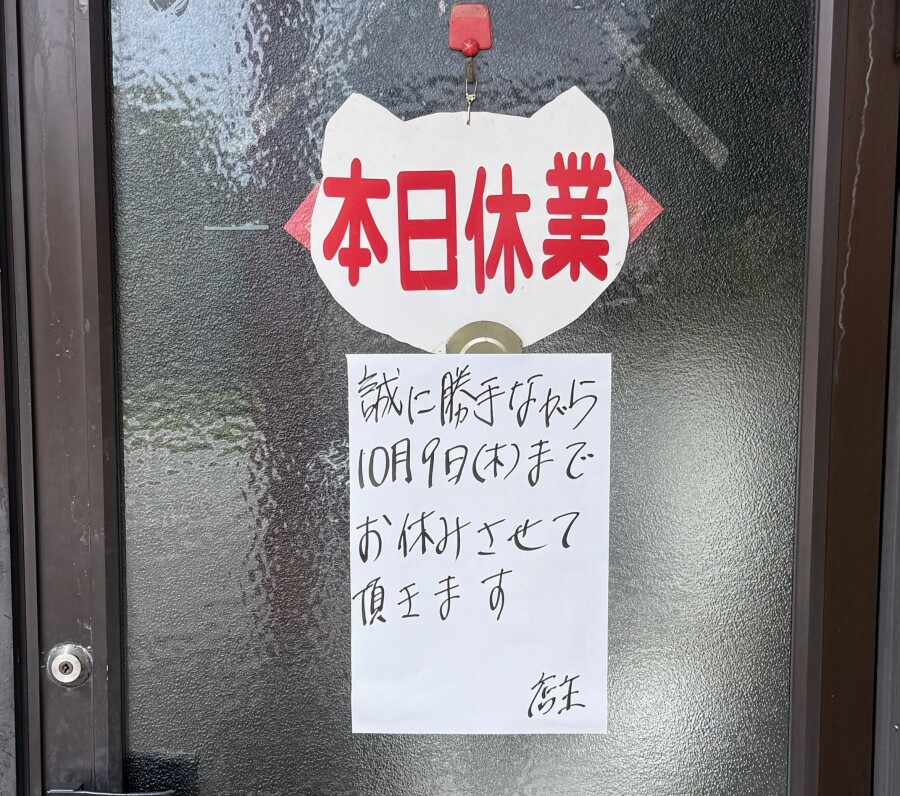 本日休業
誠に勝手ながら
10月9日(木)まで
お休みさせて
頂きます
店主